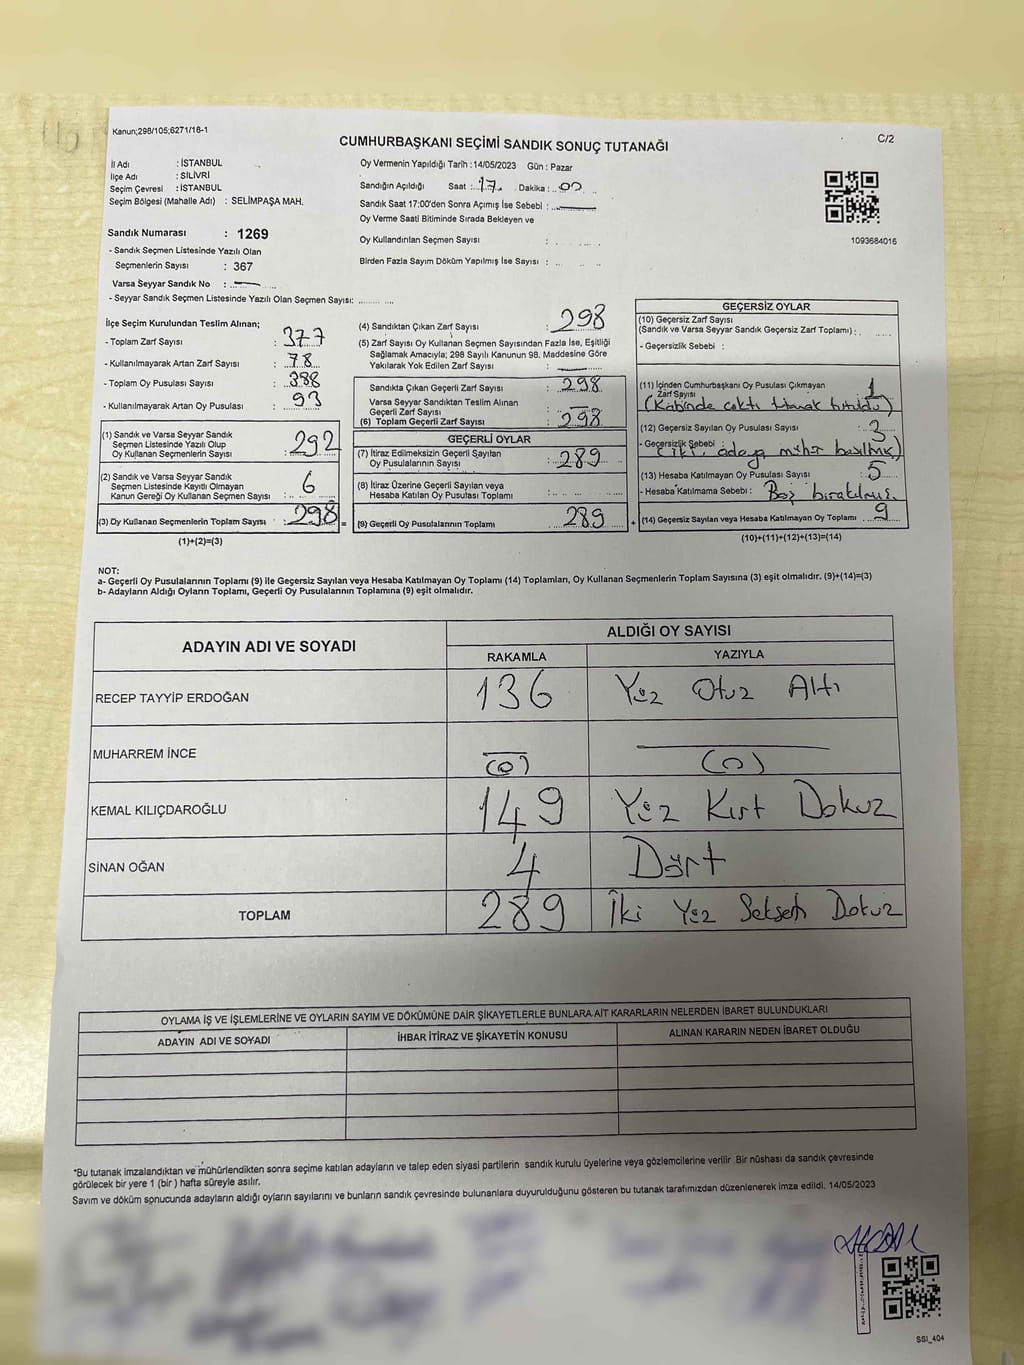 Kanun;298/105;6271/18-1
C/2
CUMHURBAŞKANI SEÇİMİ SANDIK SONUÇ TUTANAĞI
İl Adı : İSTANBUL
İlçe Adı : SİLİVRİ
Seçim Çevresi : İSTANBUL
Seçim Bölgesi (Mahalle Adı) : SELİMPAŞA MAH.
Sandık Numarası : 1269
- Sandık Seçmen Listesinde Yazılı Olan
Seçmenlerin Sayısı : 367
Varsa Seyyar Sandık No :
- Seyyar Sandık Seçmen Listesinde Yazılı Olan Seçmen Sayısı:
Oy Vermenin Yapıldığı Tarih : 14/05/2023 Gün : Pazar
Sandığın Açıldığı Saat : 17 Dakika : 00
Sandık Saat 17:00'den Sonra Açımış İse Sebebi :
Oy Verme Saati Bitiminde Sırada Bekleyen ve
Oy Kullandırılan Seçmen Sayısı :
Birden Fazla Sayım Döküm Yapılmış İse Sayısı :
1093684016
İlçe Seçim Kurulundan Teslim Alınan;
- Toplam Zarf Sayısı : 377
- Kullanılmayarak Artan Zarf Sayısı : 78
- Toplam Oy Pusulası Sayısı : 388
- Kullanılmayarak Artan Oy Pusulası : 93
(1) Sandık ve Varsa Seyyar Sandık
Seçmen Listesinde Yazılı Olup
Oy Kullanan Seçmenlerin Sayısı : 292
(2) Sandık ve Varsa Seyyar Sandık
Seçmen Listesinde Kayıtlı Olmayan
Kanun Gereği Oy Kullanan Seçmen Sayısı : 6
(3) Oy Kullanan Seçmenlerin Toplam Sayısı : 298 =
(1)+(2)=(3)
(4) Sandıktan Çıkan Zarf Sayısı : 298
(5) Zarf Sayısı Oy Kullanan Seçmen Sayısından Fazla İse, Eşitliği
Sağlamak Amacıyla; 298 Sayılı Kanunun 98. Maddesine Göre
Yakılarak Yok Edilen Zarf Sayısı :
Sandıkta Çıkan Geçerli Zarf Sayısı : 298
Varsa Seyyar Sandıktan Teslim Alınan
Geçerli Zarf Sayısı :
(6) Toplam Geçerli Zarf Sayısı : 298
GEÇERLİ OYLAR
(7) İtiraz Edilmeksizin Geçerli Sayılan
Oy Pusulalarının Sayısı : 289
(8) İtiraz Üzerine Geçerli Sayılan veya
Hesaba Katılan Oy Pusulası Toplamı :
(9) Geçerli Oy Pusulalarının Toplamı 289 +
GEÇERSİZ OYLAR
(10) Geçersiz Zarf Sayısı
(Sandık ve Varsa Seyyar Sandık Geçersiz Zarf Toplamı) :
- Geçersizlik Sebebi :
(11) İçinden Cumhurbaşkanı Oy Pusulası Çıkmayan
Zarf Sayısı : 1
(Kabinde çaktı tutanak tutuldu)
(12) Geçersiz Sayılan Oy Pusulası Sayısı : 3
- Geçersizlik Sebebi : (iki adaya mühür basılmış)
(13) Hesaba Katılmayan Oy Pusulası Sayısı : 5
- Hesaba Katılmama Sebebi : Boş bırakılmış
(14) Geçersiz Sayılan veya Hesaba Katılmayan Oy Toplamı 9
(10)+(11)+(12)+(13)=(14)
NOT:
a- Geçerli Oy Pusulalarının Toplamı (9) ile Geçersiz Sayılan veya Hesaba Katılmayan Oy Toplamı (14) Toplamları, Oy Kullanan Seçmenlerin Toplam Sayısına (3) eşit olmalıdır. (9)+(14)=(3)
b- Adayların Aldığı Oyların Toplamı, Geçerli Oy Pusulalarının Toplamına (9) eşit olmalıdır.
ADAYIN ADI VE SOYADI
ALDIĞI OY SAYISI
RAKAMLA YAZIYLA
RECEP TAYYİP ERDOĞAN 136 Yüz Otuz Altı
MUHARREM İNCE (0) (0)
KEMAL KILIÇDAROĞLU 149 Yüz Kırk Dokuz
SİNAN OĞAN 4 Dört
TOPLAM 289 İki Yüz Seksen Dokuz
OYLAMA İŞ VE İŞLEMLERİNE VE OYLARIN SAYIM VE DÖKÜMÜNE DAİR ŞİKAYETLERLE BUNLARA AİT KARARLARIN NELERDEN İBARET BULUNDUKLARI
ADAYIN ADI VE SOYADI İHBAR İTİRAZ VE ŞİKAYETİN KONUSU ALINAN KARARIN NEDEN İBARET OLDUĞU
*Bu tutanak imzalandıktan ve mühürlendikten sonra seçime katılan adayların ve talep eden siyasi partilerin sandık kurulu üyelerine veya gözlemcilerine verilir. Bir nüshası da sandık çevresinde
görülecek bir yere 1 (bir ) hafta süreyle asılır.
Sayım ve döküm sonucunda adayların aldığı oyların sayılarını ve bunların sandık çevresinde bulunanlara duyurulduğunu gösteren bu tutanak tarafımızdan düzenlenerek imza edildi. 14/05/2023
SSI_404